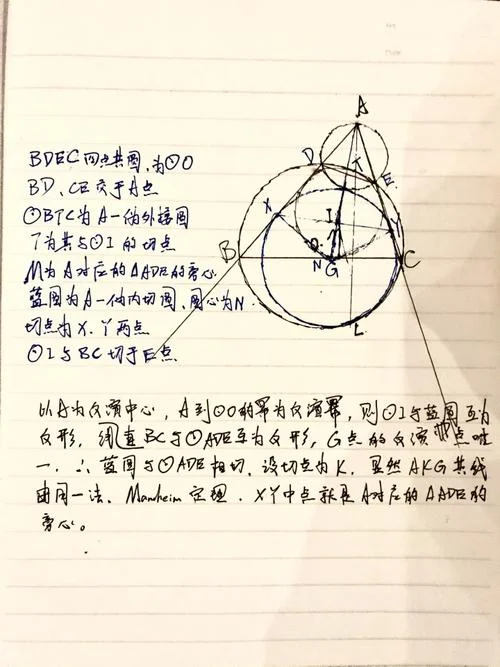 A
BDEC四点共圆,为⊙O
BD、CE交于A点
⊙BTC为A-伪外接圆
T为其与⊙I的切点
M为A对应的△ADE的旁心
蓝圆为A-伪内切圆,圆心为N.
切点为X.Y两点
⊙I与BC切于E点
D
E
X
I
Y
O
B
N
G
C
L
以A为反演中心,A到⊙O的幂为反演幂,则⊙I与蓝圆互为
反形,直BC与⊙ADE互为反形,G点的反演点唯
一.∴蓝圆与⊙ADE相切.设切点为K.显然AKG共线
由同一法、Manheim定理.XY中点就是A对应的△ADE的
旁心。